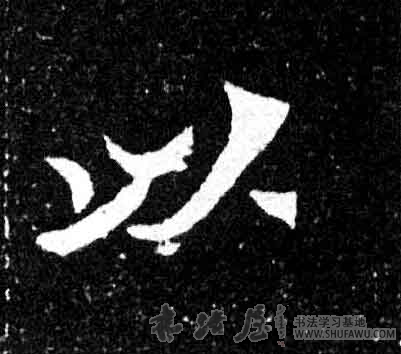 以
书法屋
书法学习基地
WWW.SHUFAWU.COM